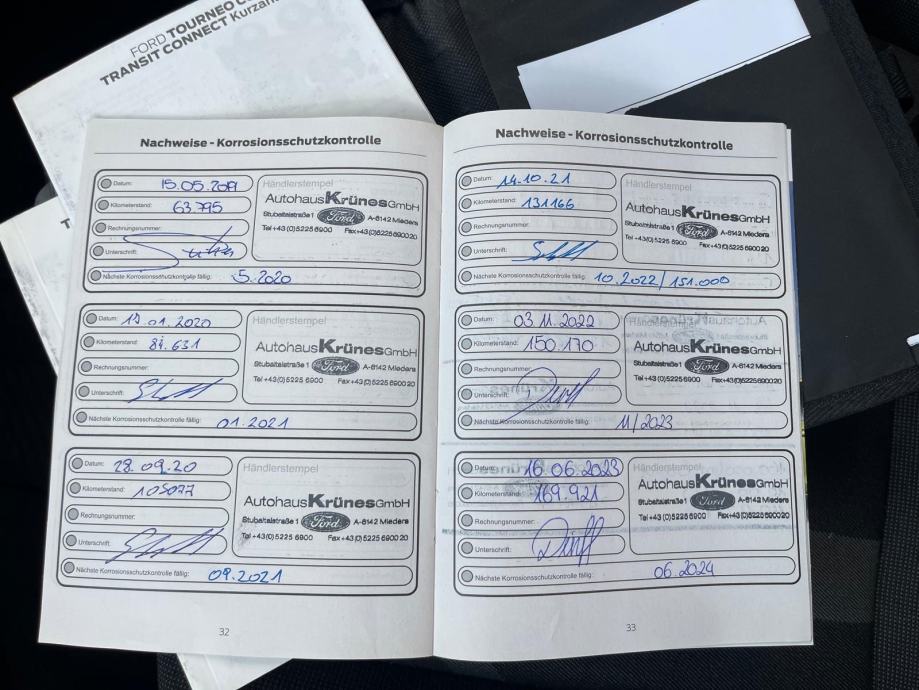 FORD TOURNEO C
TRANSIT CONNECT Kurzan
Nachweise - Korrosionsschutzkontrolle
Datum: 15.05.2019
Kilometerstand: 63.795
Rechnungsnummer:
Unterschrift:
Nächste Korrosionsschutzkontrolle fällig: 5.2020
Händlerstempel
Autohaus Krünes GmbH
Stubaitalstraße 1 Ford A-6142 Mieders
Tel +43(0)5225 6900 Fax+43(0)5225 690020
Datum: 17.01.2020
Kilometerstand: 84.631
Rechnungsnummer:
Unterschrift:
Nächste Korrosionsschutzkontrolle fällig: 01.2021
Händlerstempel
Autohaus Krünes GmbH
Stubaitalstraße 1 Ford A-6142 Mieders
Tel +43(0)5225 6900 Fax+43(0)5225 690020
Datum: 28.09.20
Kilometerstand: 105077
Rechnungsnummer:
Unterschrift:
Nächste Korrosionsschutzkontrolle fällig: 09.2021
Händlerstempel
Autohaus Krünes GmbH
Stubaitalstraße 1 Ford A-6142 Mieders
Tel +43(0)5225 6900 Fax+43(0)5225 690020
32
Nachweise - Korrosionsschutzkontrolle
Datum: 14.10.21
Kilometerstand: 131166
Rechnungsnummer:
Unterschrift:
Nächste Korrosionsschutzkontrolle fällig: 10.2022/151.000
Händlerstempel
Autohaus Krünes GmbH
Stubaitalstraße 1 Ford A-6142 Mieders
Tel +43(0)5225 6900 Fax+43(0)5225 690020
Datum: 03.11.2022
Kilometerstand: 150.170
Rechnungsnummer:
Unterschrift:
Nächste Korrosionsschutzkontrolle fällig: 11/2023
Händlerstempel
Autohaus Krünes GmbH
Stubaitalstraße 1 Ford A-6142 Mieders
Tel +43(0)5225 6900 Fax+43(0)5225 690020
Datum: 16.06.2023
Kilometerstand: 169.921
Rechnungsnummer:
Unterschrift:
Nächste Korrosionsschutzkontrolle fällig: 06.2024
Händlerstempel
Autohaus Krünes GmbH
Stubaitalstraße 1 Ford A-6142 Mieders
Tel +43(0)5225 6900 Fax+43(0)5225 690020
33